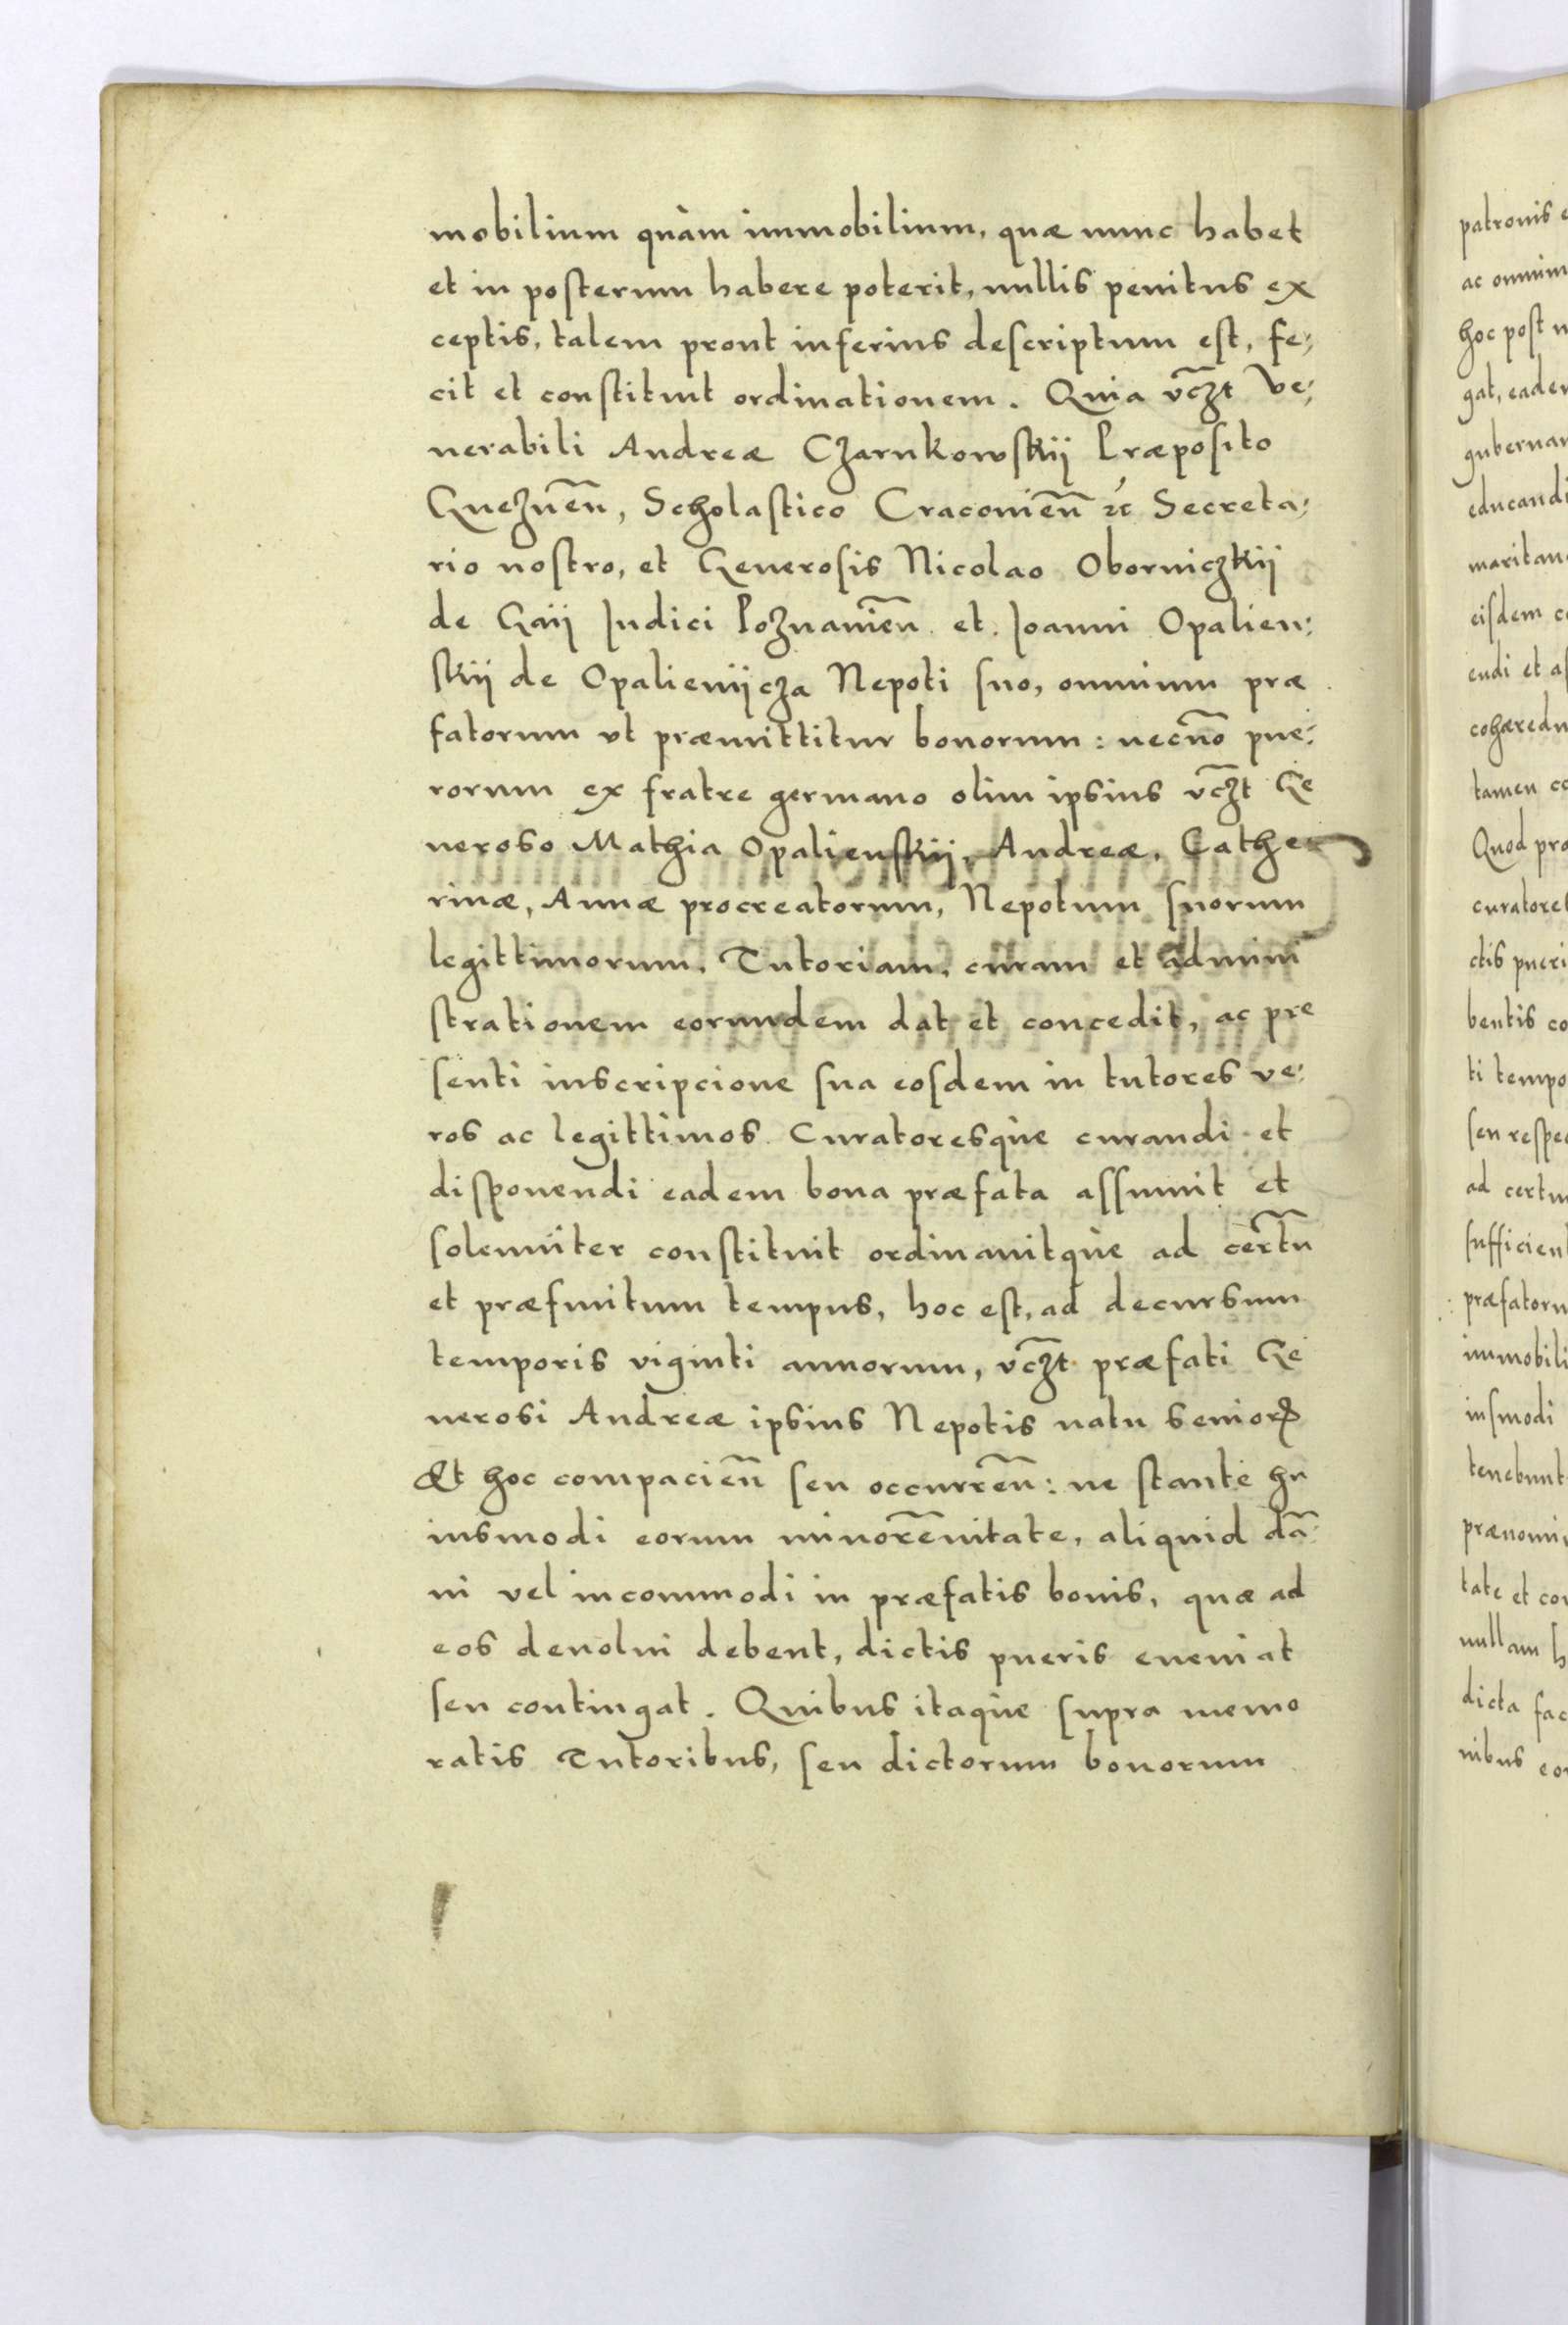 mobilium quàm immobilium, quæ nunc habet
et in posterum habere poterit, nullis penitus ex
ceptis, talem prout inferius descriptum est, fe:
cit et constituit ordinationem. Quia vc̃zt Ve:
nerabili Andreæ Czarnkowskij Præposito
Gneznen̄, Scholastico Cracouien̄ ꝛc̃ Secreta:
rio nostro, et Generosis Nicolao Oborniczkij
de Gaij Iudici Poznanien̄ et Ioanni Opalien:
skij de Opalienijcza Nepoti suo, omnium præ
fatorum vt præmittitur bonorum: necnõ pue:
rorum ex fratre germano olim ipsius vc̃zt Ge
neroso Mathia Opalienskij, Andreæ, Cathe
rinæ, Annæ procreatorum, Nepotum suorum
legittimorum, Tutoriam, curam et admini
strationem eorundem dat et concedit, ac pre
senti inscripcione sua eosdem in tutores ve:
ros ac legittimos Curatoresqùe curandi et
disponendi eadem bona præfata assumit et
solemniter constituit ordinauitqùe ad certũ
et præfinitum tempus, hoc est, ad decursum
temporis viginti annorum, vc̃zt præfati Ge
nerosi Andreæ ipsius Nepotis natu senioris
Et hoc compacien̄ seu occurren̄: ne stante hu
iusmodi eorum minorēnitate, aliquid dã:
ni vel incommodi in præfatis bonis, quæ ad
eos deuolui debent, dictis pueris eueniat
seu contingat. Quibus itaqùe supra memo
ratis Tutoribus, seu dictorum bonorum
patronis
hoc post
gat,
educandi
eisdem
endi et
tamen
Quod
ctis pueri
bentis
ti
ad
tate et
nullam
dicta
nibus